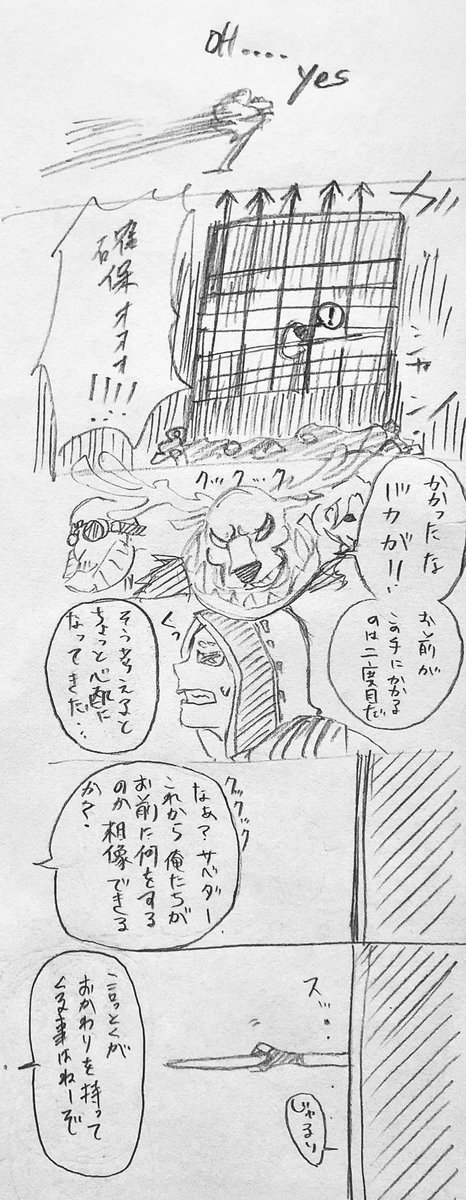 OH....
yes
ガシャン
確保オオオ
!!!!...
!
クックック
かかったな
バカが!!
お前が
この手にかかる
のは二度目だ
くっ
そう考えると
ちょっと心配に
なってきた...
クックック
なぁ?サベダー
これから俺たちが
お前に何をする
のか相像できる
か?
ス....
言っとくが
おかわりを持って
くる事はねーぞ
じゃるり